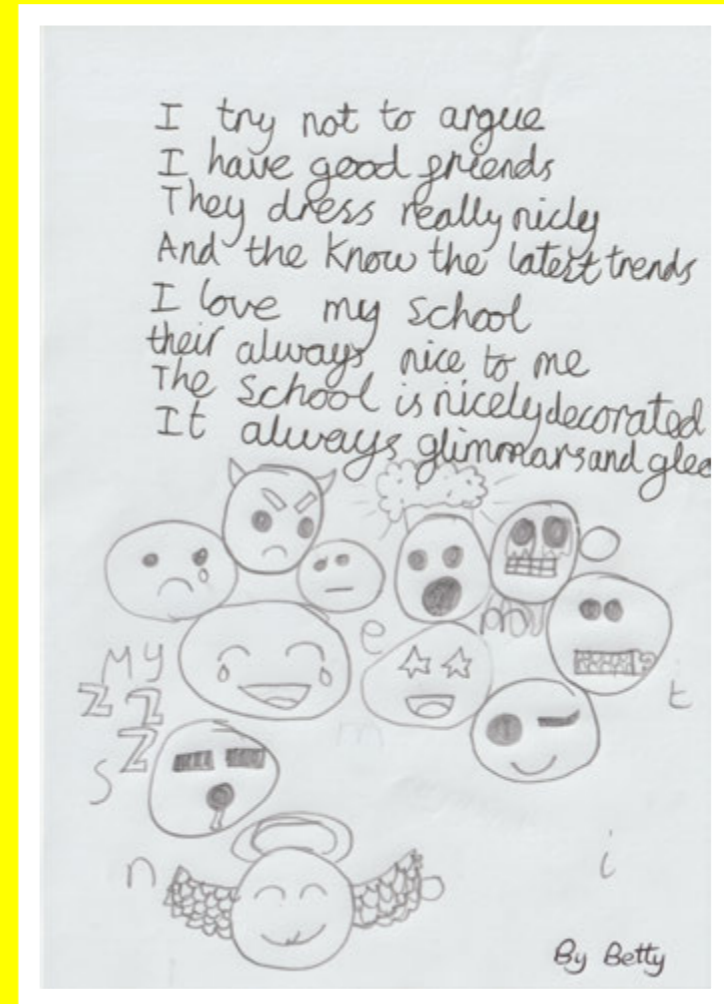 I try not to argue
I have good friends
They dress really nicly
And the know the latest trends
I love my school
their always nice to me
The school is nicely decorated
It always glimmars and glea
My
e
m
o
t
i
o
n
s
Z Z
Z
By Betty